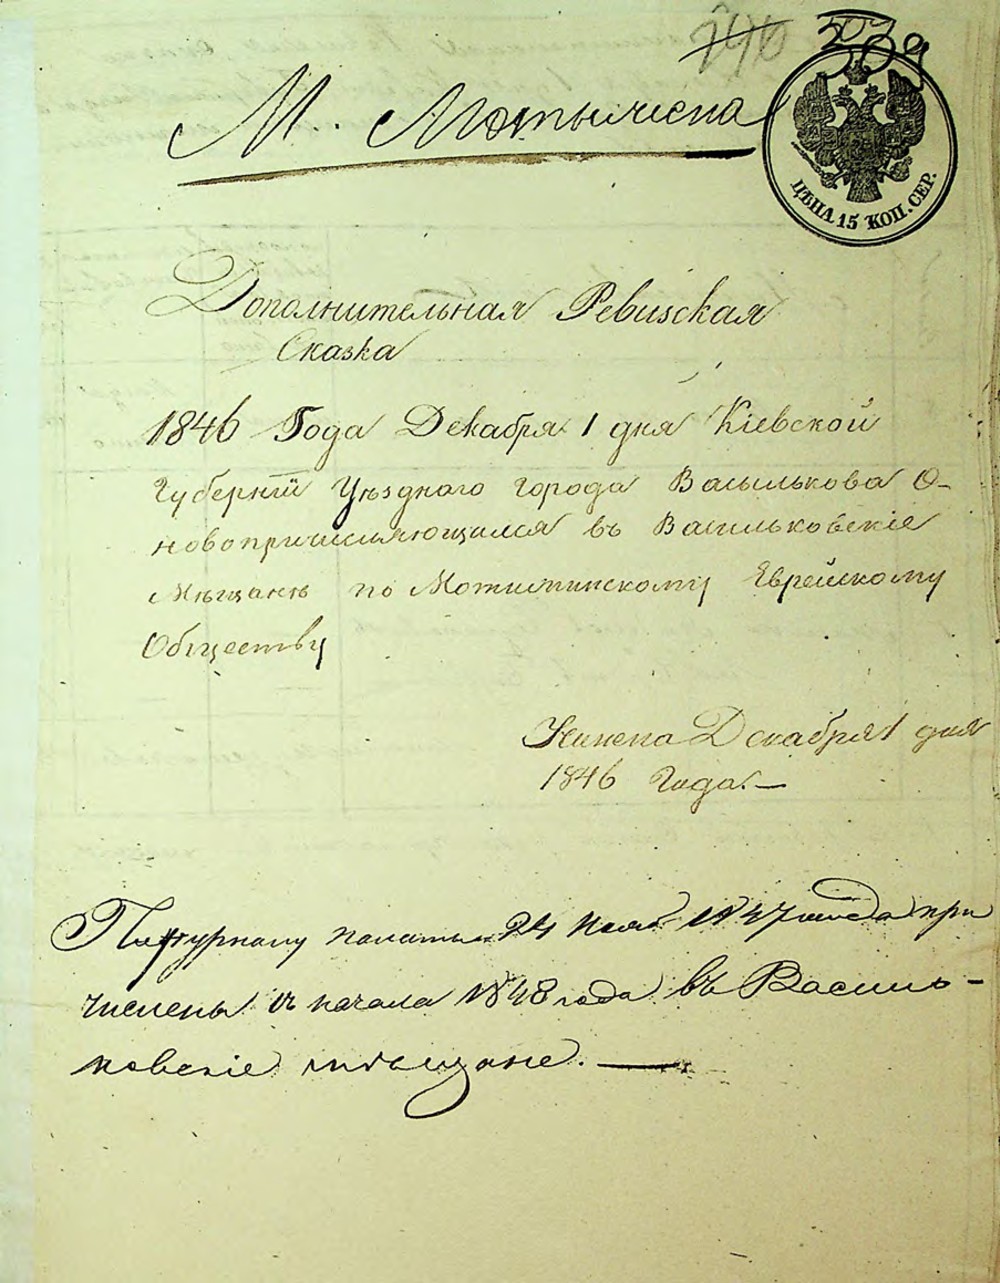 246 309
М. Мотыжена
ЦѢНА 15 КОП. СЕР.
Дополнительная Ревизская
Сказка
1846 Года Декабря 1 дня Кіевской
Губерніи Уѣзднаго города Василькова О-
новопричисляющимся въ Васильковскіе
Мѣщане по Мотижинскому Еврейскому
Обществу
Декабря 1 дня
1846 Года. —
палаты 24 1847 года при
числены съ начала 1848 года въ Василь-
ковскіе мѣщане. —